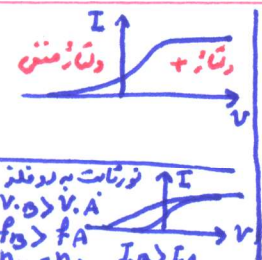 I
ولتاژ منفی ولتاژ +
V
نور ثابت به دو فلز
I
V.B > V.A
V
fB > fA